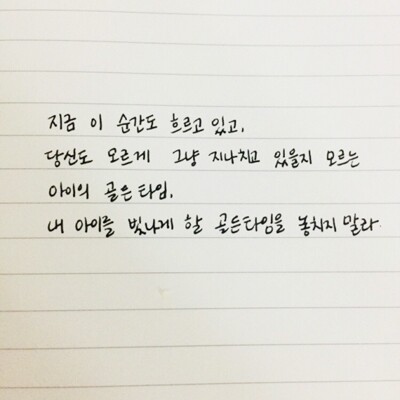 지금 이 순간도 흐르고 있고,
당신도 모르게 그냥 지나치고 있을지 모르는
아이의 골든타임.
내 아이를 빛나게 할 골든타임을 놓치지 말라.